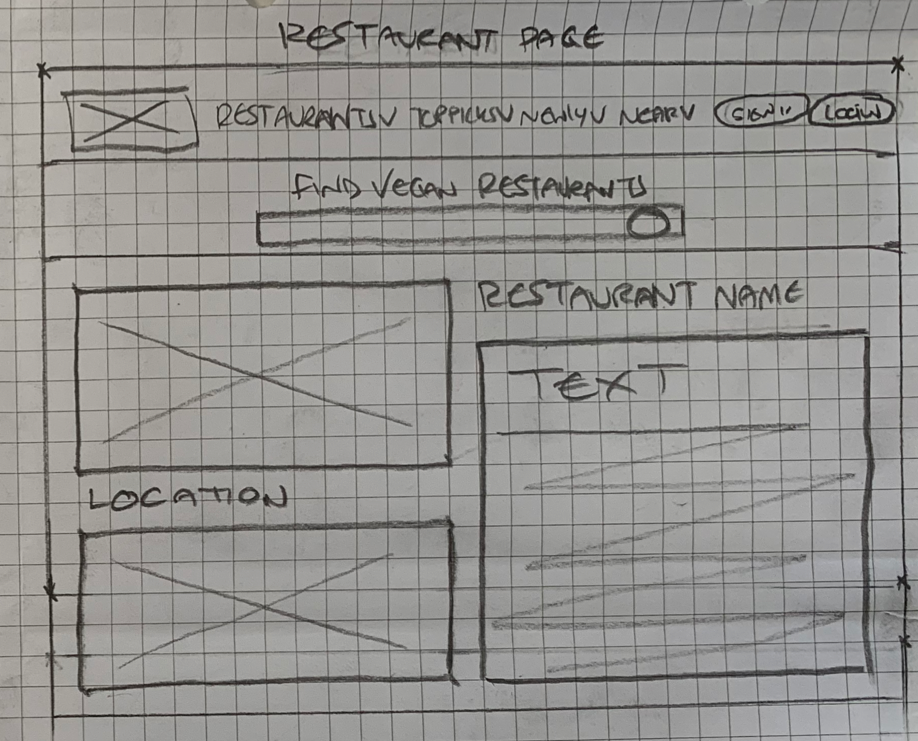 RESTAURANT PAGE
RESTAURANTS V TOPPICKS V NEWLY V NEARV SIGN U LOGIN
FIND VEGAN RESTAURANTS
RESTAURANT NAME
TEXT
LOCATION